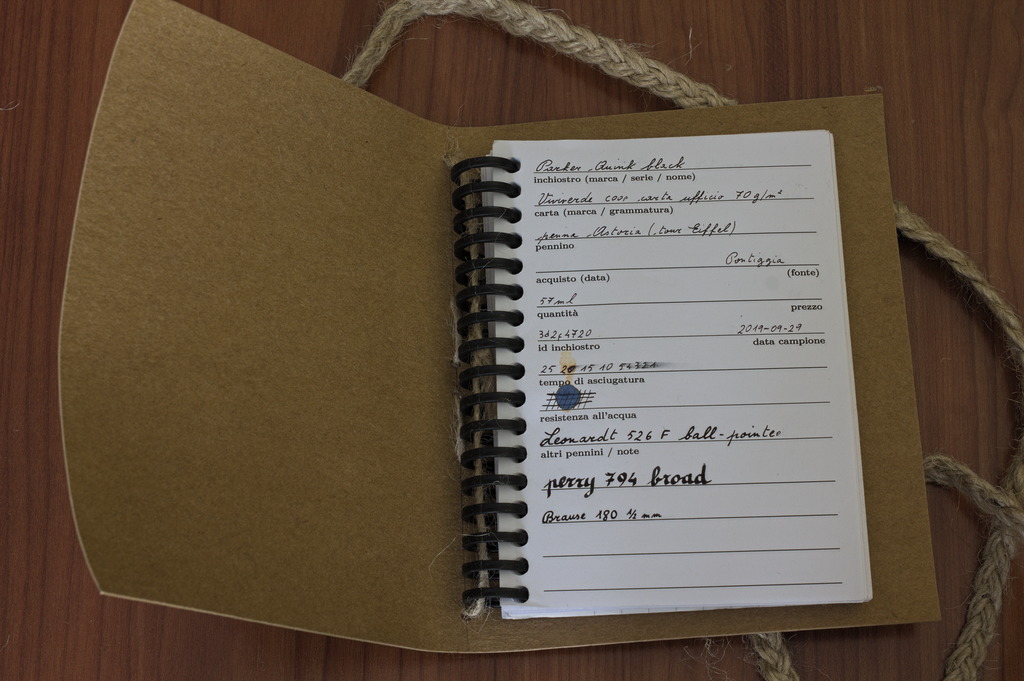 Parker Quink black
inchiostro (marca / serie / nome)
Viviverde coop carta ufficio 70 g/m²
carta (marca / grammatura)
penna Astoria (tour Eiffel)
pennino
Pontiggia
acquisto (data) (fonte)
57 ml
quantità prezzo
3d2c4720 2019-09-29
id inchiostro data campione
25 20 15 10 54321
tempo di asciugatura
resistenza all'acqua
Leonardt 526 F ball-pointed
altri pennini / note
perry 794 broad
Brause 180 ½ mm